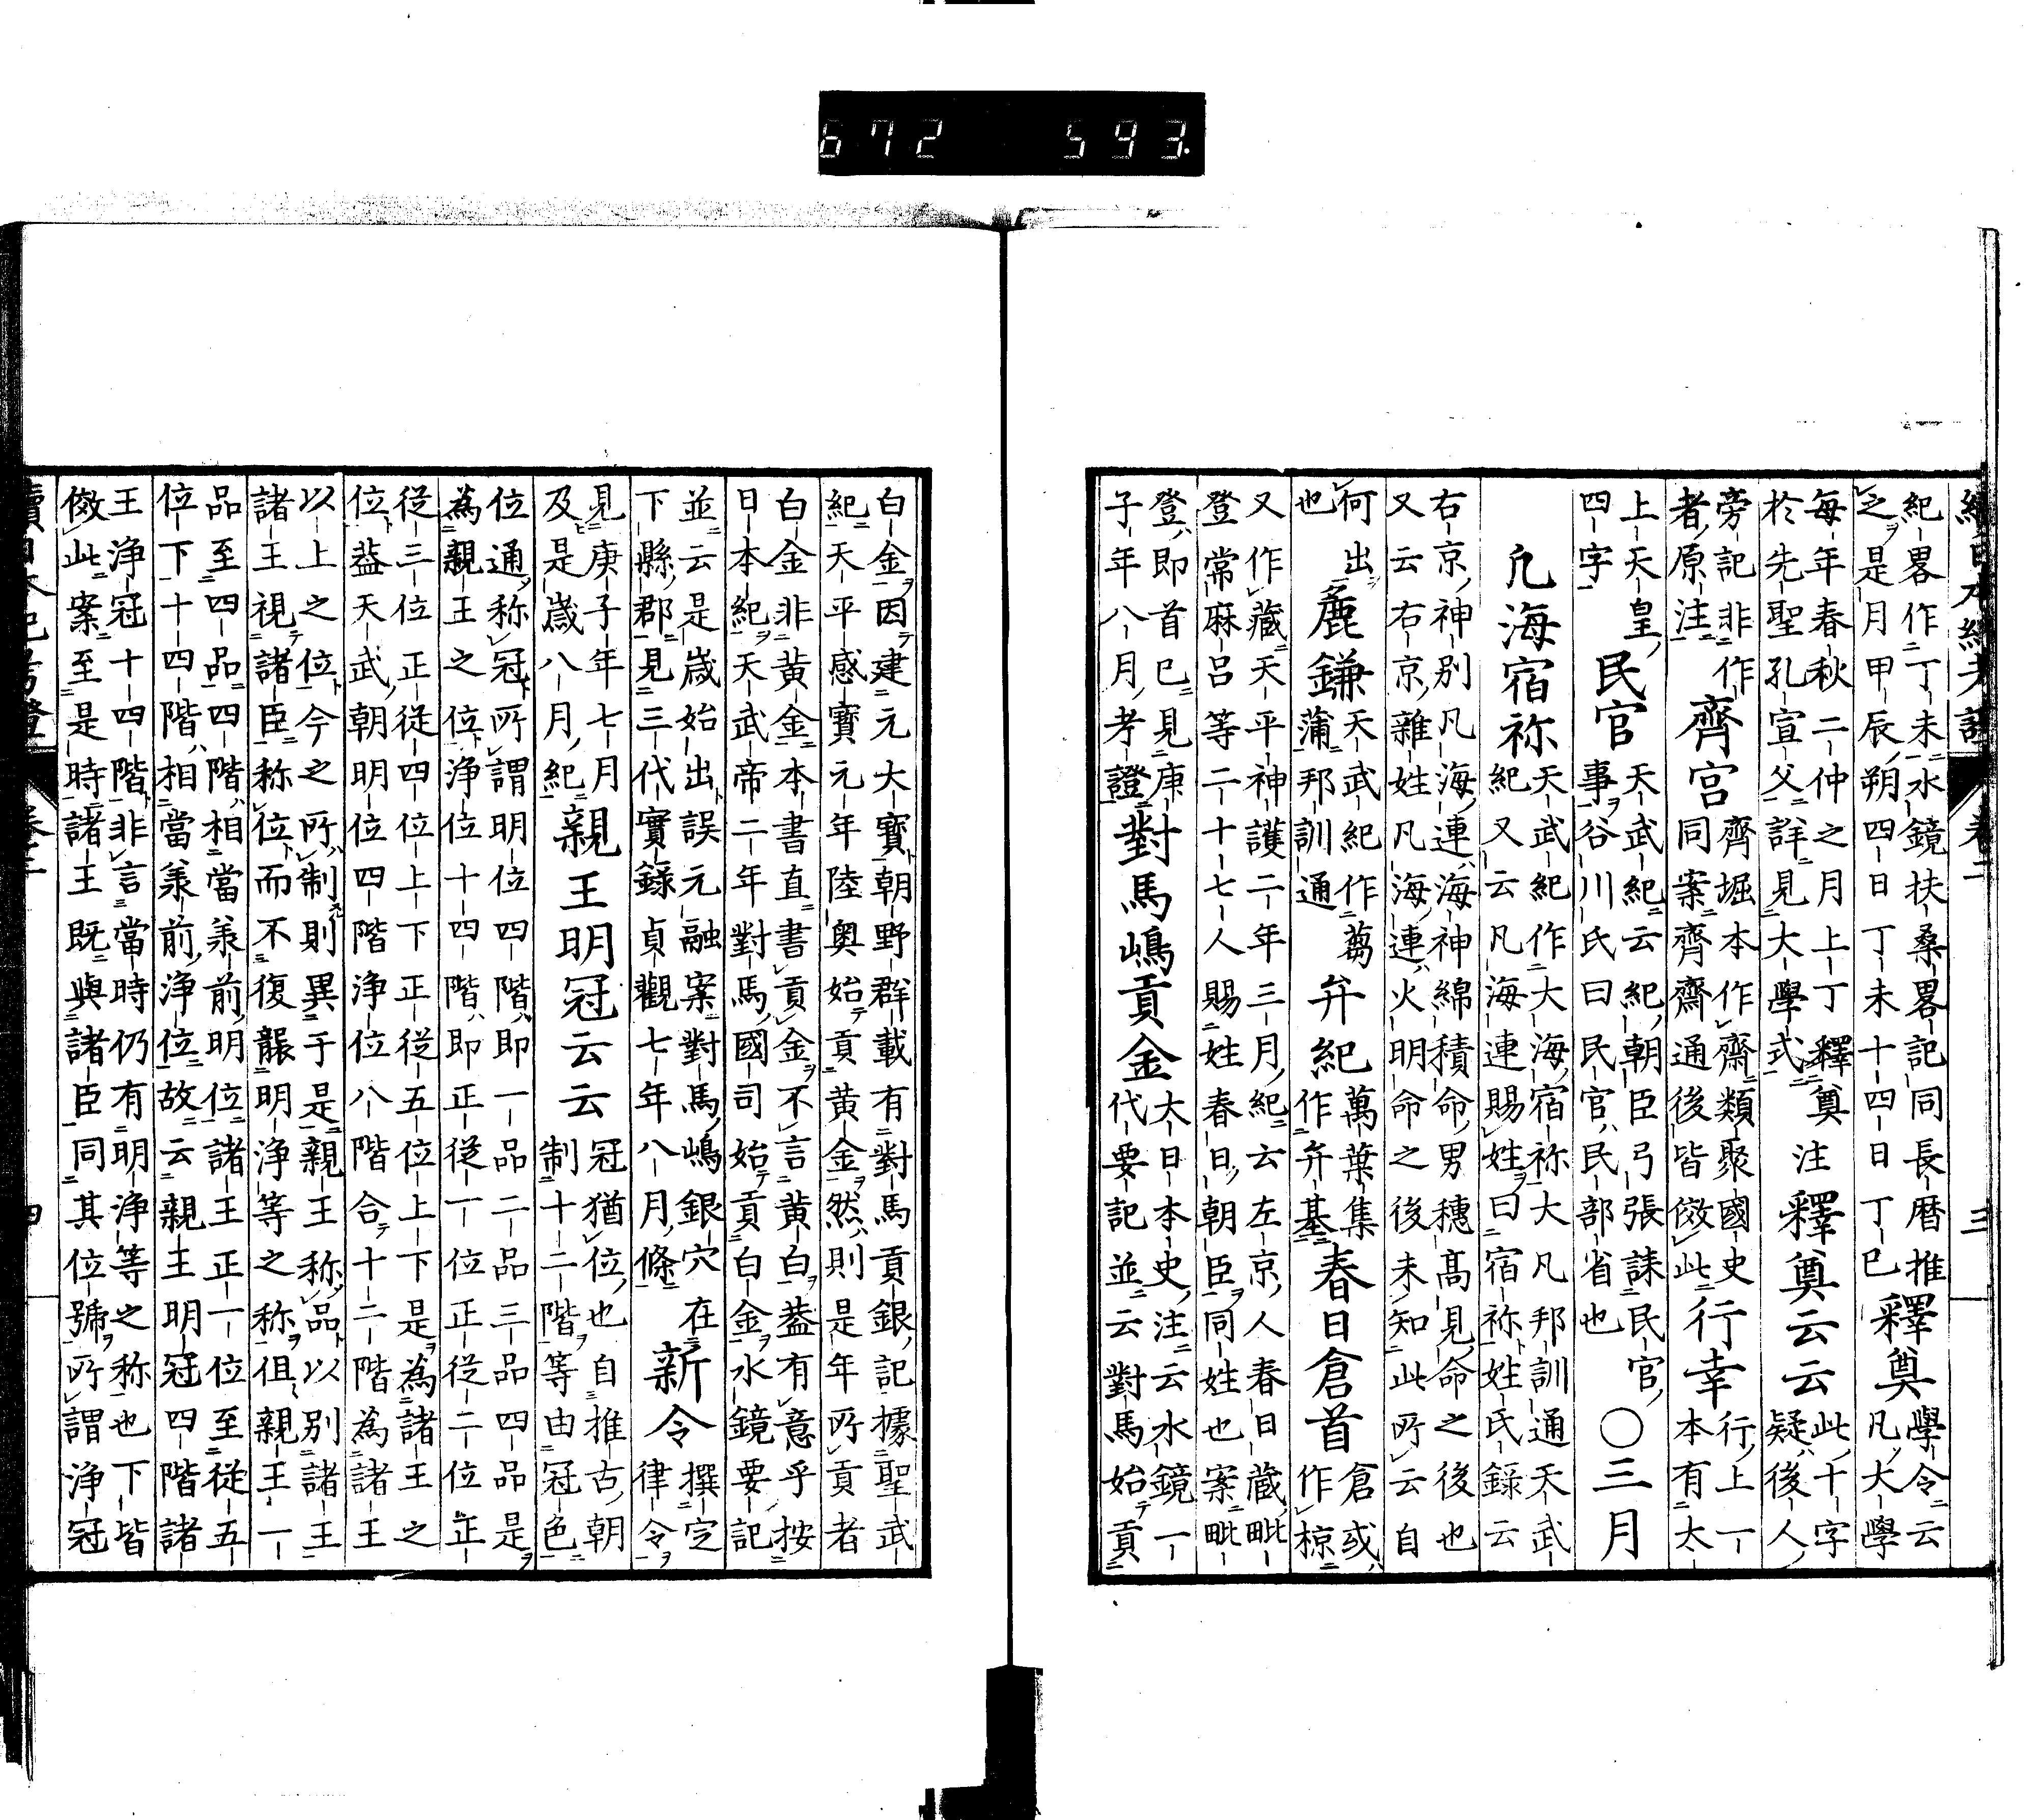 672 593
紀畧作丁未水鏡扶桑畧記同長曆推
之是月甲辰朔四日丁未十四日丁巳釋奠學令云
凡大學
每年春秋二仲之月上丁釋奠
於先聖孔宣父詳見大學式
注釋奠云云此十字
疑後人
旁記非作
者原注
齊宮齊堀本作齋類聚國史
同案齊齋通後皆傚此
行幸行上一
本有太
上天皇
四字
民官天武紀云紀朝臣弓張誄民官
事谷川氏曰民官民部省也
〇三月
凡海宿祢天武紀作大海宿祢大凡邦訓通天武
紀又云凡海連賜姓曰宿祢姓氏錄云
右京神別凡海連海神綿積命男穗髙見命之後也
又云右京雜姓凡海連火明命之後未知此所云自
何出
也
麁鎌天武紀作蒭
蒲邦訓通
弁紀萬葉集
作弁基
春日倉首倉或
作椋
又作藏天平神護二年三月紀云左京人春日藏毗
登常麻呂等二十七人賜姓春日朝臣同姓也案毗
登即首已見庚
子年八月考證
對馬嶋貢金大日本史注云水鏡一
代要記並云對馬始貢
白金因建元大寶朝野群載有對馬貢銀記據聖武
紀天平感寶元年陸奧始貢黃金然則是年所貢者
白金非黃金本書直書貢金不言黃白葢有意乎按
日本紀天武帝二年對馬國司始貢白金水鏡要記
並云是歲始出誤元融案對馬嶋銀穴在
下縣郡見三代實錄貞觀七年八月條
新令撰定
律令
見庚子年七月
及是歲八月紀
親王明冠云云冠猶位也自推古朝
制十二階等由冠色
位通称冠所謂明位四階即一品二品三品四品是
為親王之位净位十四階即正從一位正從二位正
從三位正從四位上下正從五位上下是為諸王之
位葢天武朝明位四階净位八階合十二階為諸王
以上之位今之所制則異于是親王称品以別諸王
諸王視諸臣称位而不復襲明净等之称但親王一
品至四品四階相當羕前明位諸王正一位至從五
位下十四階相當羕前净位故云親王明冠四階諸
王净冠十四階非言當時仍有明净等之称也下皆
傚此案至是時諸王既與諸臣同其位號所謂净冠